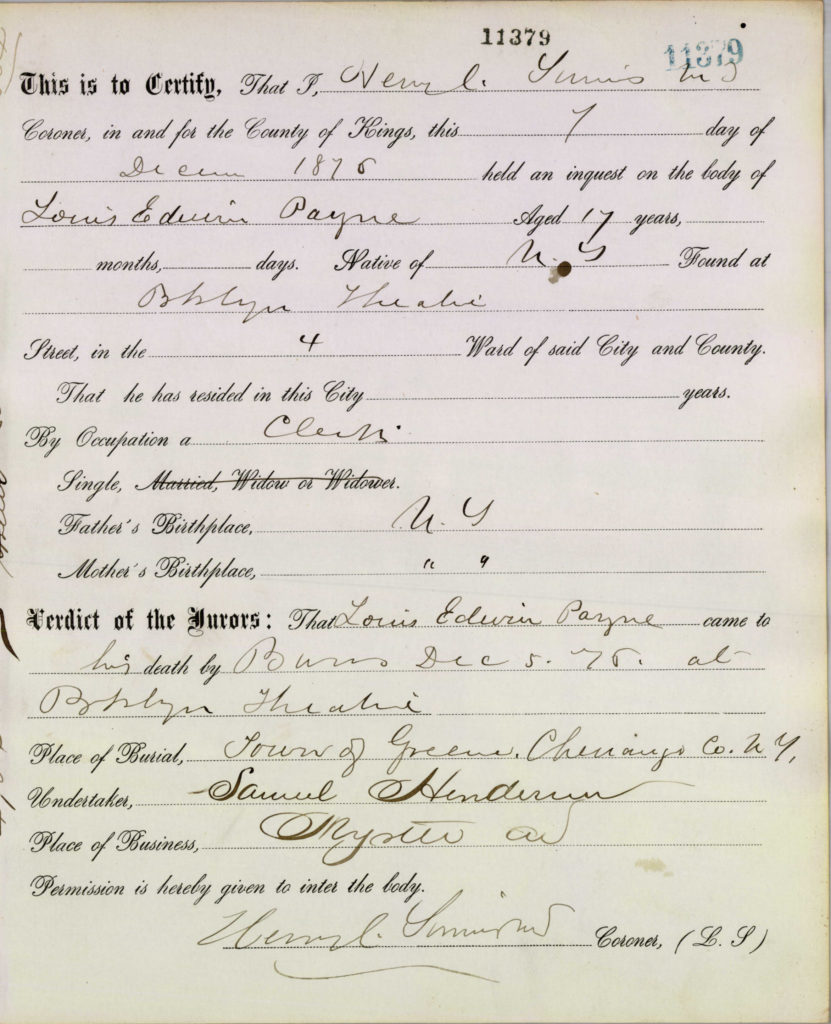 11379
11379
This is to Certify, That I, Henry C. Simms M D
Coroner, in and for the County of Kings, this 7 day of
Decem 1876 held an inquest on the body of
Louis Edwin Payne Aged 17 years,
months, days. Native of N. Y Found at
Bklyn Theatre
Street, in the 4 Ward of said City and County.
That he has resided in this City years.
By Occupation a Clerk
Single, Married, Widow or Widower.
Father's Birthplace, N. Y
Mother's Birthplace, " "
Verdict of the Jurors: That Louis Edwin Payne came to
his death by Burns Dec 5. 76. at
Bklyn Theatre
Place of Burial, Town of Greene. Chenango Co. N Y,
Undertaker, Samuel Henderson
Place of Business, Myrtle av
Permission is hereby given to inter the body.
Henry C. Simms Coroner, (L. S)